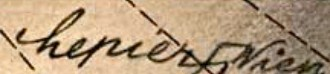 chepier, Wien